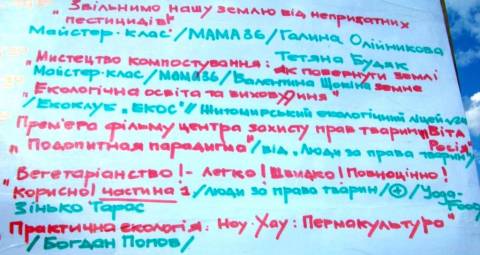 „Звільнимо нашу землю від неприкатних
пестицидів"
Майстер-клас/МАМА86/Галина Олійникова
„Мистецтво компостування: Тетяна Будяк
Майстер-клас/МАМА86/Валентина як повернути землі
земне
„Екологічна освіта та виховання"
/Екоклуб „ЕКОС"//Житомирський екологічний ліцей №24
Прем'єра фільму центра захисту прав тварин „Віта
Росія"
„Подопитная парадигма"/від „Люди за права тварин/
„Вегетаріанство!- легко! Швидко! Повноцінно!
Корисно! частина 1/люди за права тварин/+/Yoga-
Food
Зінько Тарас
Практична екологія: Ноу-Хау: Пермакультура"
/Богдан Попов/